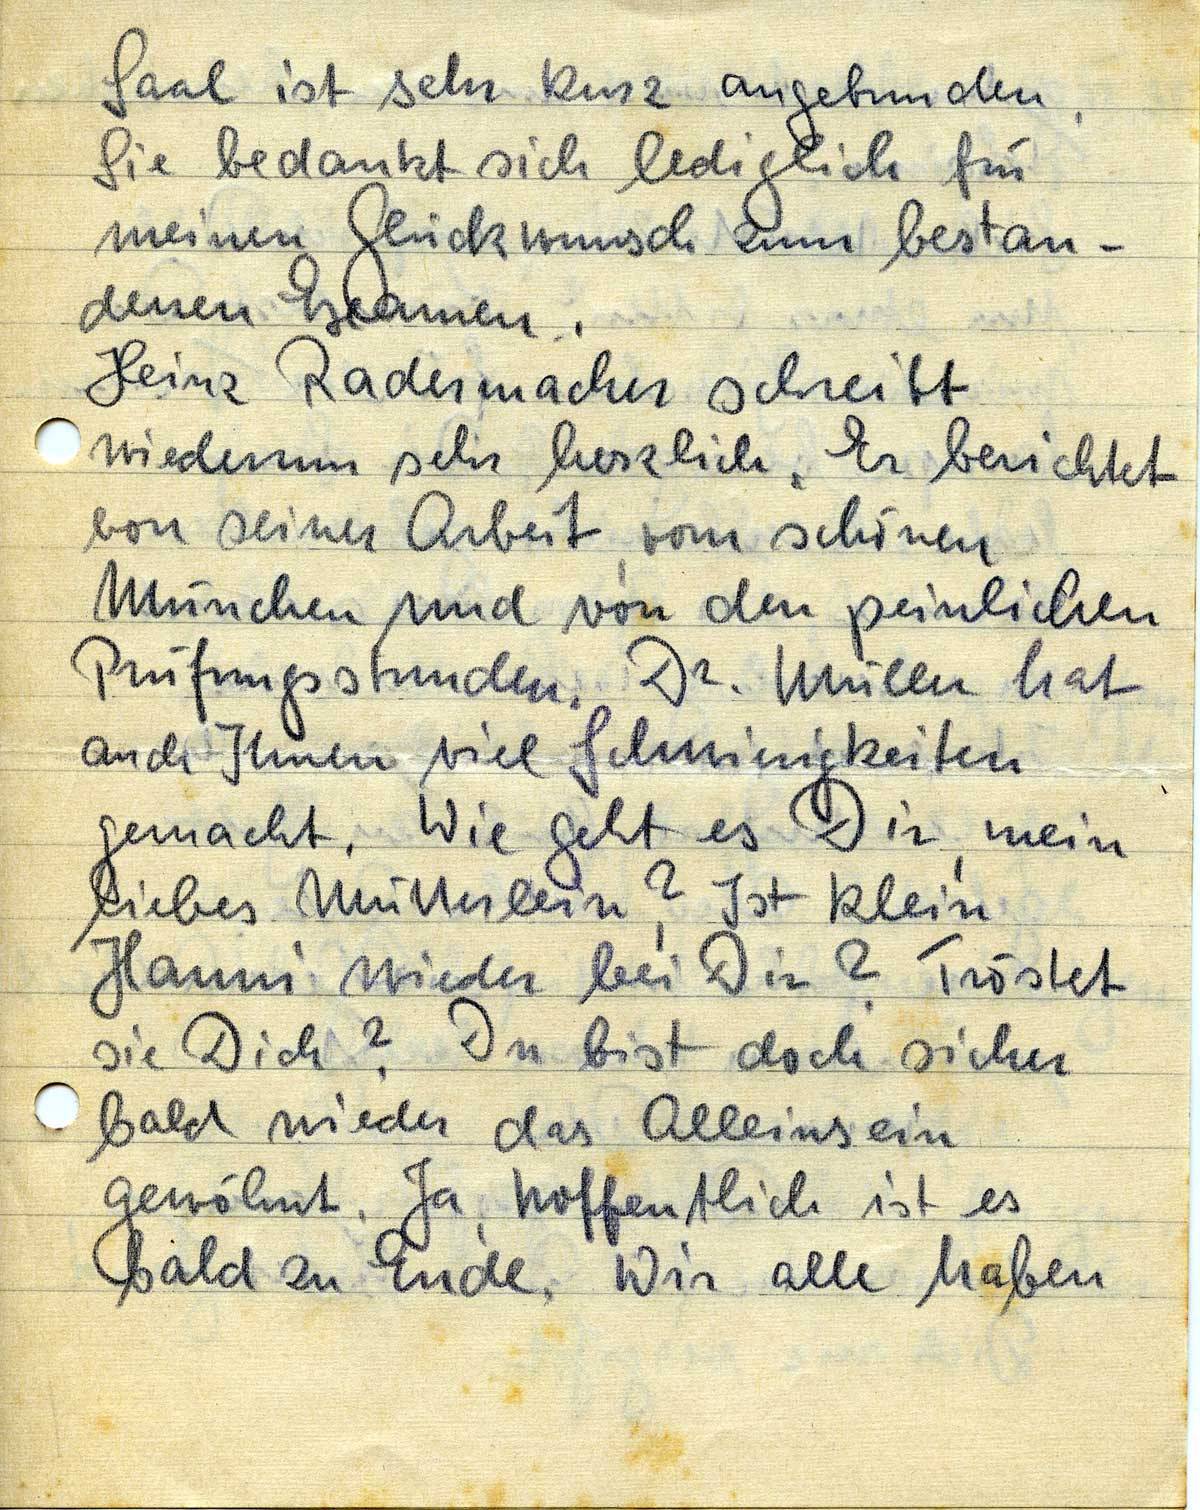 Saal ist sehr kurz angebunden.
Sie bedankt sich lediglich für
meinen Glückwunsch zum bestan-
denen Examen.
Heinz Radermacher schreibt
wiederum sehr herzlich. Er berichtet
von seiner Arbeit, vom schönen
München und von den peinlichen
Prüfungsstunden. Dr. Müller hat
auch Ihnen viel Schwierigkeiten
gemacht. Wie geht es Dir, mein
liebes Mütterlein? Ist klein
Hanni wieder bei Dir? Tröstet
sie Dich? Du bist doch sicher
bald wieder das Alleinsein
gewöhnt. Ja, hoffentlich ist es
bald zu Ende. Wir alle haben